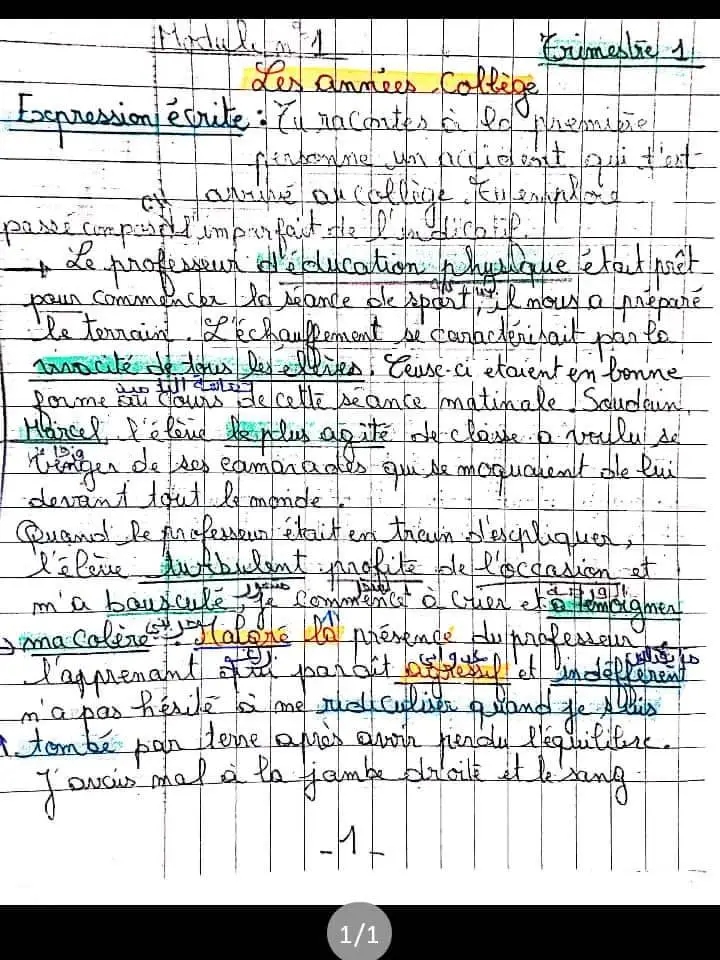 Module n° 1
Trimestre 1
Les années Collège
Expression écrite : Tu racontes à la première
personne un accident qui t'est
arrivé au collège. Tu emploie
passé composé l'imparfait de l'indicatif.
→ Le professeur d'éducation physique était prêt
pour commencer la séance de sport, il nous a préparé
le terrain. L'échauffement se caractérisait par la
de tous les élèves. Ceux-ci etaient en bonne
forme au cours de cette séance matinale. Soudain,
Marcel l'élève le plus agité de classe a voulu se
venger de ses camarades qui se moquaient de lui
devant tout le monde.
Quand le professeur était en train d'escpliquer,
l'élève turbulent profite de l'occasion et
m'a bousculé, je commence à crier et à temoigner
ma colère. Malgré la présence du professeur
l'apprenant qui paraît agressif et indéfférent
n'a pas hésité à me ridiculiser quand je suis
tombé par terre après avoir perdu l'équilibre.
J'avais mal à la jambe droite et le sang
-1-
1/1